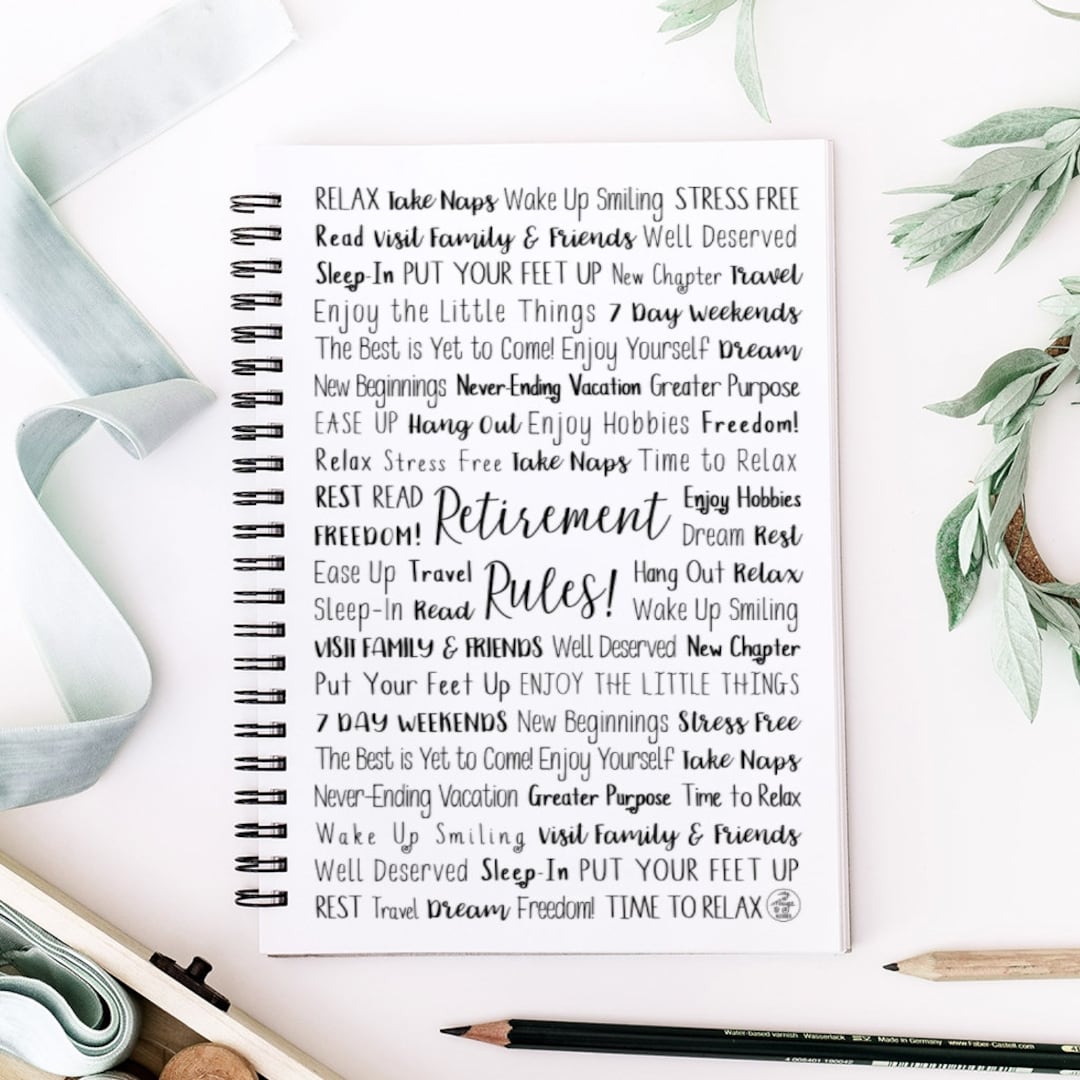 RELAX Take Naps Wake Up Smiling STRESS FREE
Read Visit Family & Friends Well Deserved
Sleep-In PUT YOUR FEET UP New Chapter Travel
Enjoy the Little Things 7 Day Weekends
The Best is Yet to Come! Enjoy Yourself Dream
New Beginnings Never-Ending Vacation Greater Purpose
EASE UP Hang Out Enjoy Hobbies Freedom!
Relax Stress Free Take Naps Time to Relax
REST READ Retirement Enjoy Hobbies
FREEDOM! Dream Rest
Ease Up Travel Rules! Hang Out Relax
Sleep-In Read Wake Up Smiling
VISIT FAMILY & FRIENDS Well Deserved New Chapter
Put Your Feet Up ENJOY THE LITTLE THINGS
7 DAY WEEKENDS New Beginnings Stress Free
The Best is Yet to Come! Enjoy Yourself Take Naps
Never-Ending Vacation Greater Purpose Time to Relax
Wake Up Smiling Visit Family & Friends
Well Deserved Sleep-In PUT YOUR FEET UP
REST Travel Dream Freedom! TIME TO RELAX
Water-based varnish Wasserlack Made in Germany www.Faber-Castell.com
4 005401 190042